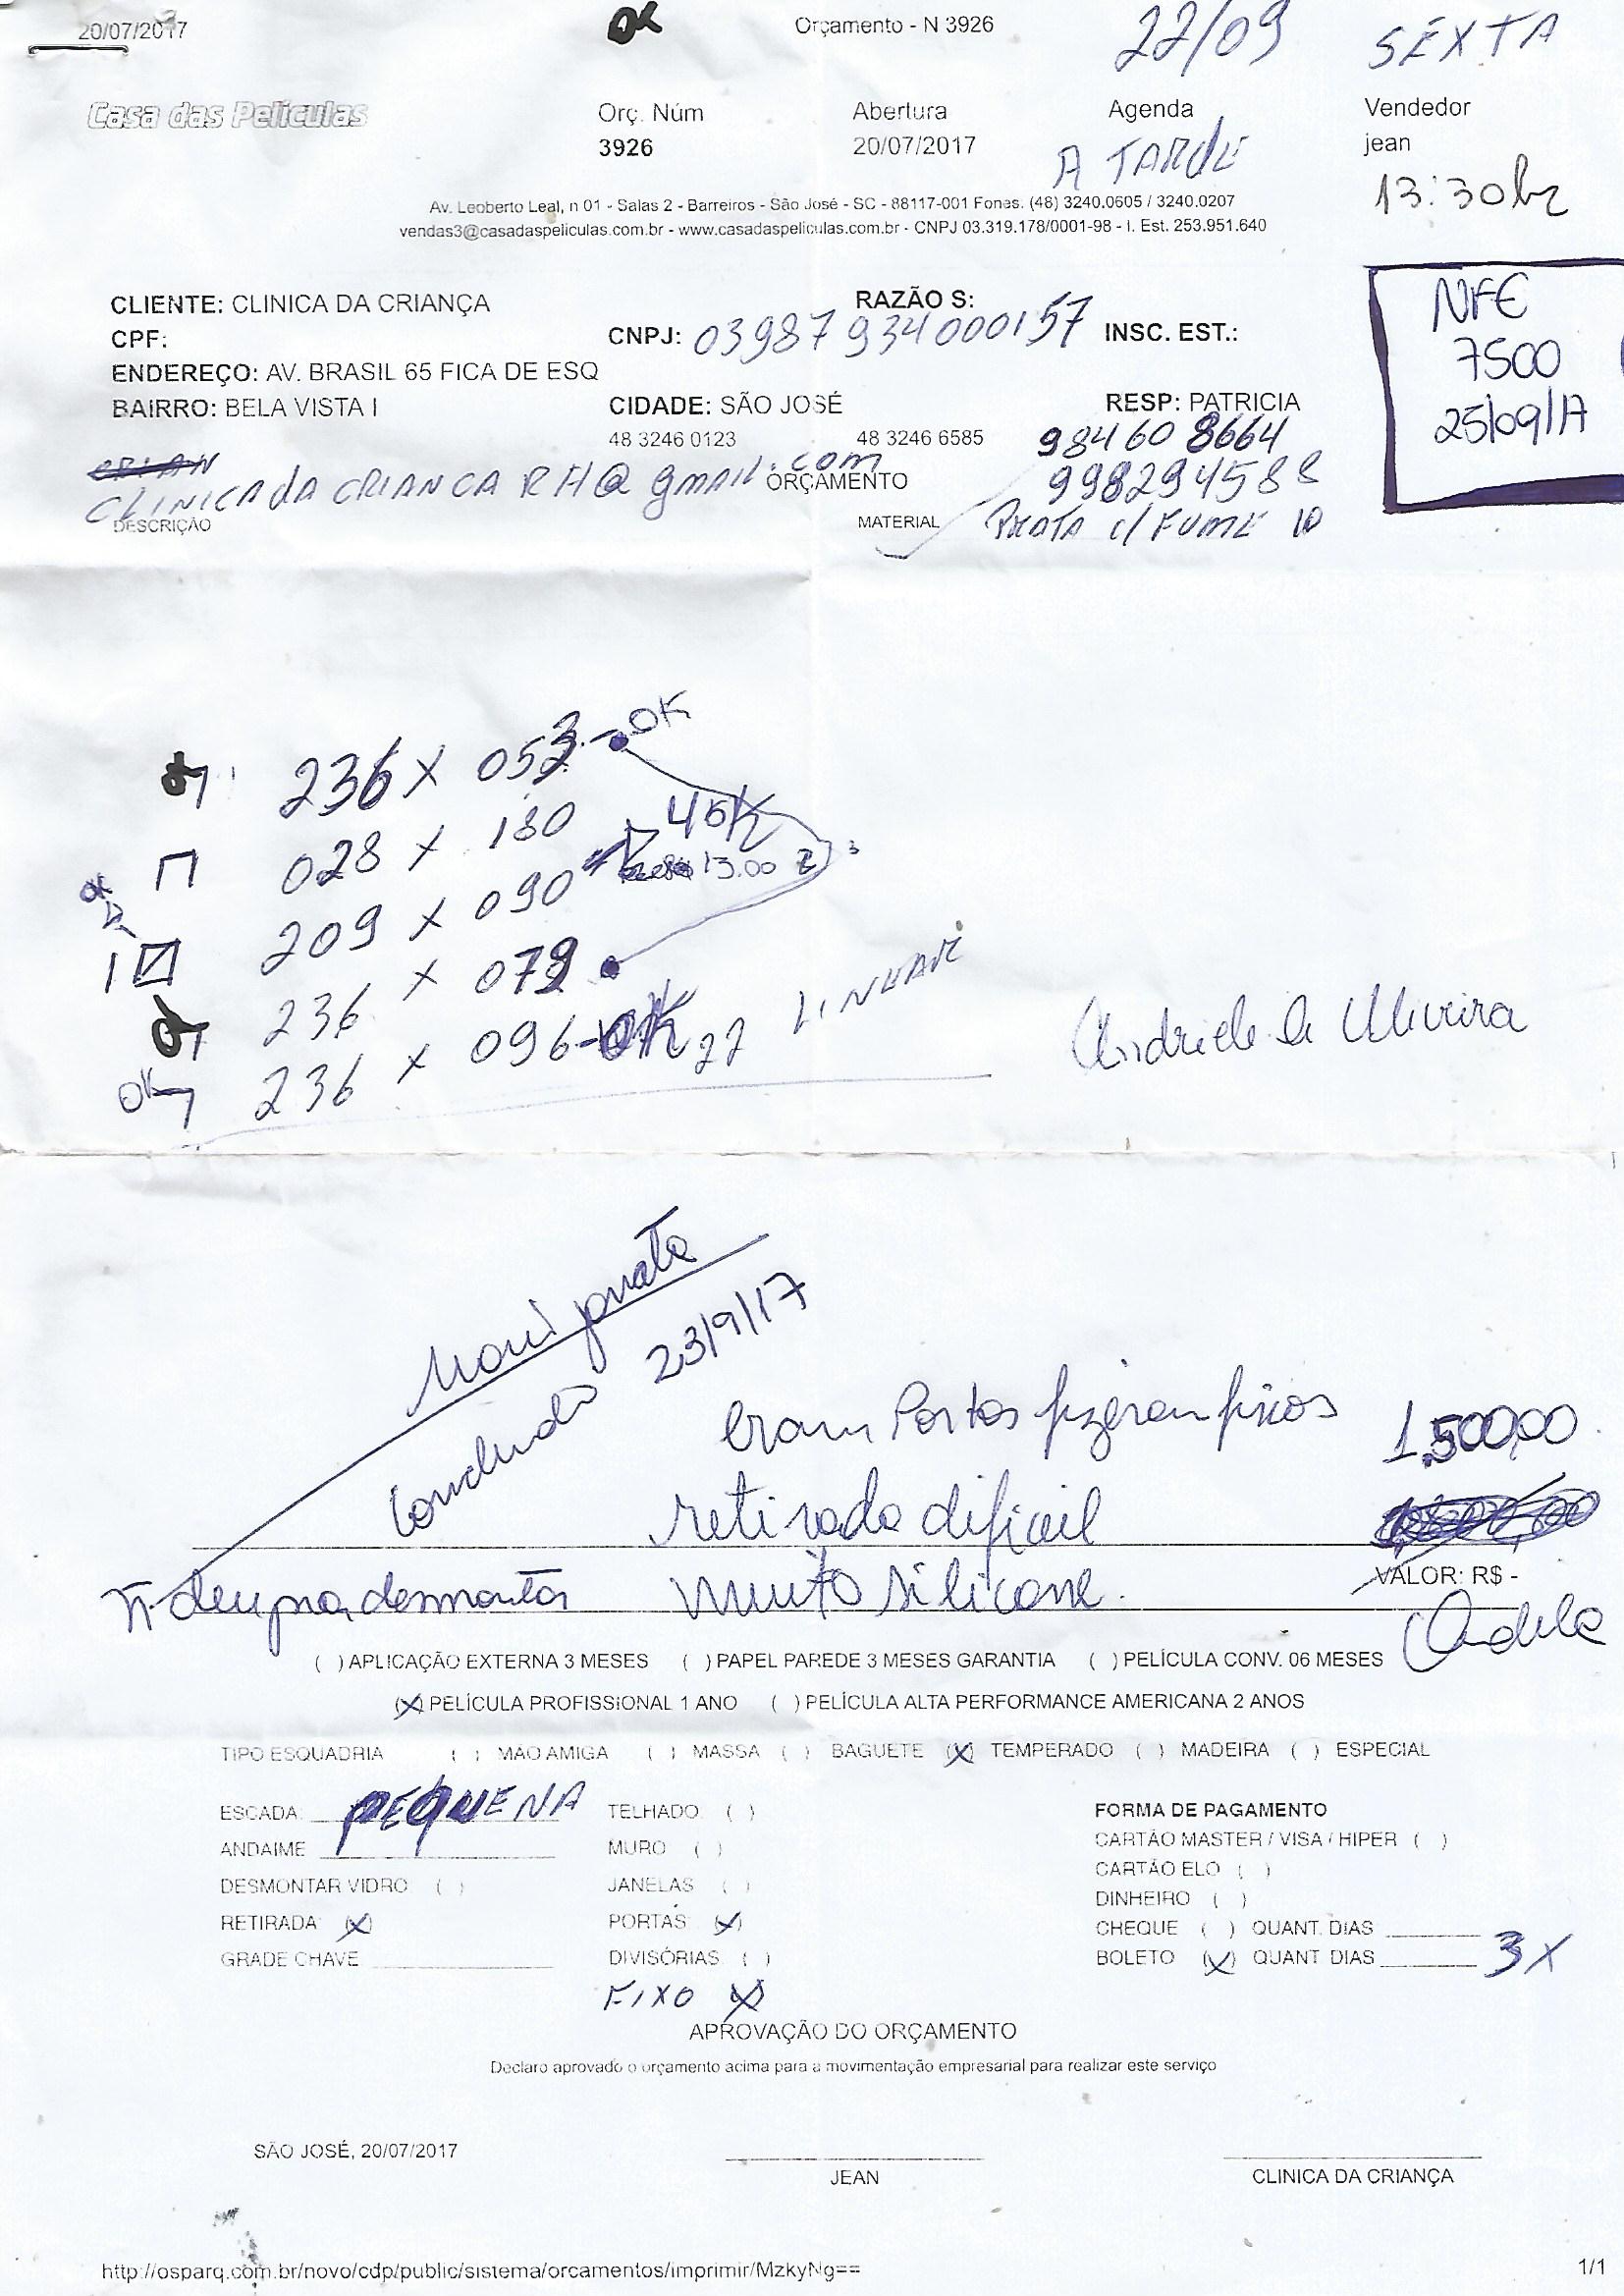 20/07/2017 OK Orçamento - N 3926 22/09 SEXTA
Casa das Películas Orç. Núm Abertura Agenda Vendedor
3926 20/07/2017 A TARDE jean
13:30hr
Av. Leoberto Leal, n 01 - Salas 2 - Barreiros - São José - SC - 88117-001 Fones. (48) 3240.0605 / 3240.0207
vendas3@casadaspeliculas.com.br - www.casadaspeliculas.com.br - CNPJ 03.319.178/0001-98 - I. Est. 253.951.640
NFE
7500
25/09/17
CLIENTE: CLINICA DA CRIANÇA RAZÃO S:
CPF: CNPJ: 03987934000157 INSC. EST.:
ENDEREÇO: AV. BRASIL 65 FICA DE ESQ
BAIRRO: BELA VISTA I CIDADE: SÃO JOSÉ RESP: PATRICIA
48 3246 0123 48 3246 6585 984608664
998294588
CLINICA dA CRIANCA RH@gmail.com ORÇAMENTO
DESCRIÇÃO MATERIAL PRATA c/ FUME 10
236 x 053 - OK
028 x 180
OK 209 x 090 13.00
1 236 x 079
OK 236 x 096 - OK 22 LINEAR
Andriele de Oliveira
Mari prata
Concluído 23/9/17
Eram Portas fizeram fixos 1.500,00
retirada dificil
VALOR: R$ -
ñ deu pra desmontar muito silicone.
( ) APLICAÇÃO EXTERNA 3 MESES ( ) PAPEL PAREDE 3 MESES GARANTIA ( ) PELÍCULA CONV. 06 MESES
(X) PELÍCULA PROFISSIONAL 1 ANO ( ) PELÍCULA ALTA PERFORMANCE AMERICANA 2 ANOS
TIPO ESQUADRIA ( ) MAO AMIGA ( ) MASSA ( ) BAGUETE (X) TEMPERADO ( ) MADEIRA ( ) ESPECIAL
ESCADA: PEQUENA TELHADO ( ) FORMA DE PAGAMENTO
ANDAIME MURO ( ) CARTÃO MASTER / VISA / HIPER ( )
CARTÃO ELO ( )
DESMONTAR VIDRO ( ) JANELAS ( ) DINHEIRO ( )
RETIRADA (X) PORTAS (X) CHEQUE ( ) QUANT. DIAS
GRADE CHAVE DIVISÓRIAS ( ) BOLETO (X) QUANT DIAS 3X
FIXO (X)
APROVAÇÃO DO ORÇAMENTO
Declaro aprovado o orçamento acima para a movimentação empresarial para realizar este serviço
SÃO JOSÉ, 20/07/2017
JEAN CLINICA DA CRIANÇA
http://osparq.com.br/novo/cdp/public/sistema/orcamentos/imprimir/MzkyNg== 1/1